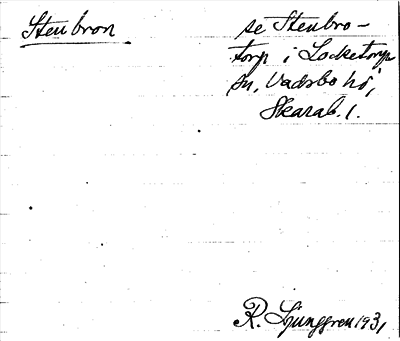 Stenbron
se Stenbro-
torp i Locketorps
sn, Vadsbo hd,
Skarab. l.
R. Ljunggren 1931